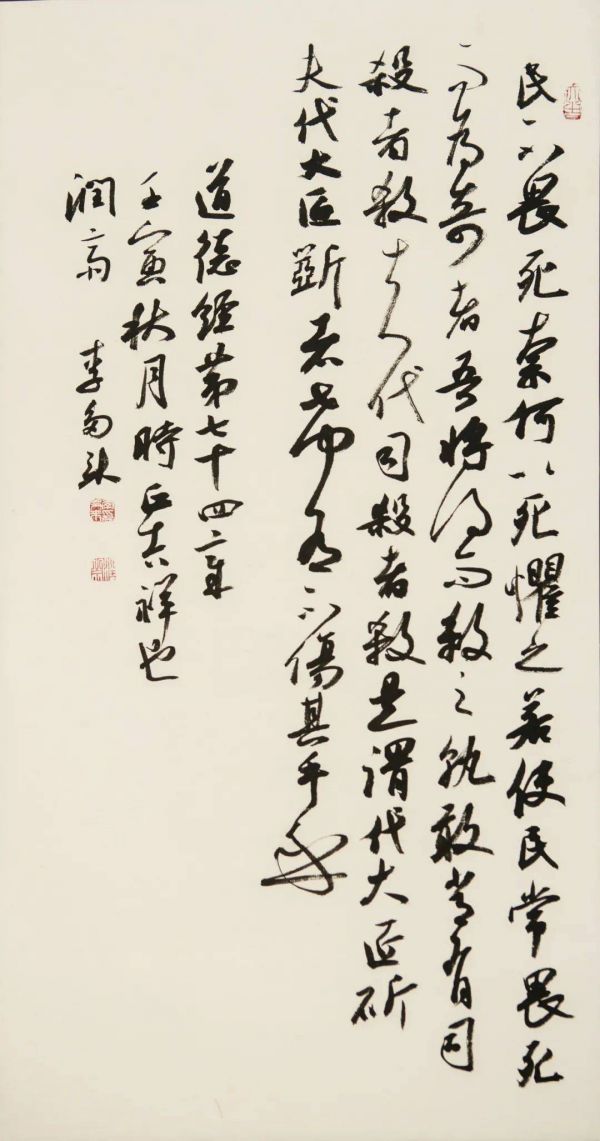 民不畏死奈何以死懼之若使民常畏死
而為奇者吾將得而殺之孰敢常有司
殺者殺夫代司殺者殺是謂代大匠斫
夫代大匠斲者希有不傷其手矣
道德經第七十四章
壬寅秋月時吉祥也
潤齋 李